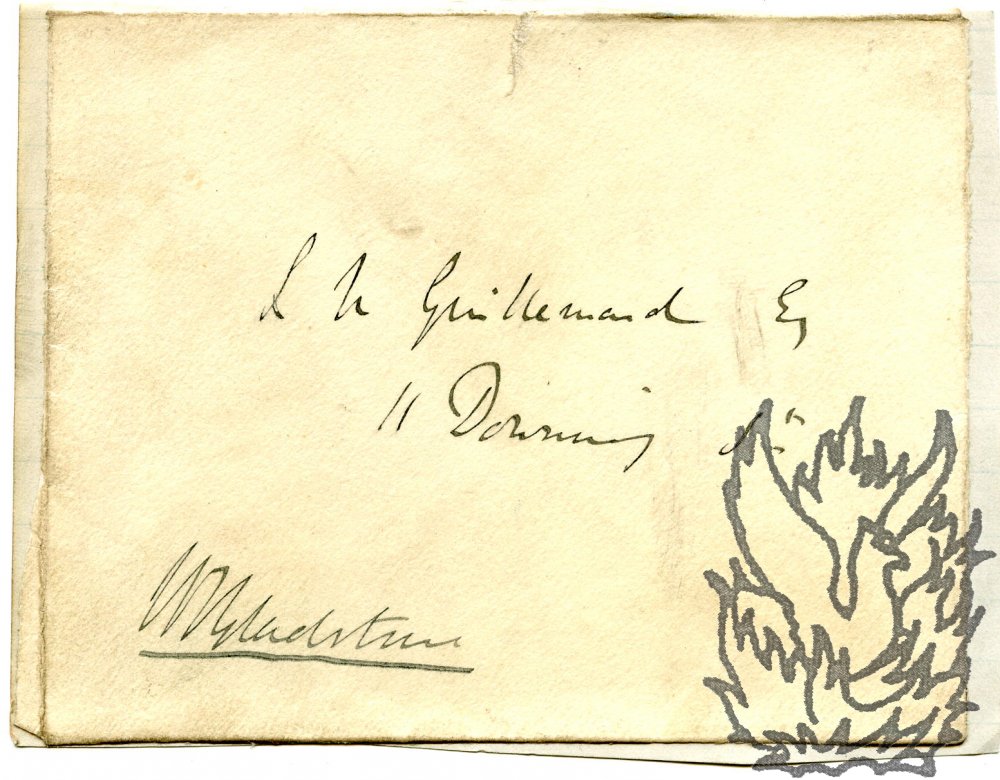 L N Guillemard Esq
11 Downing St
WEGladstone